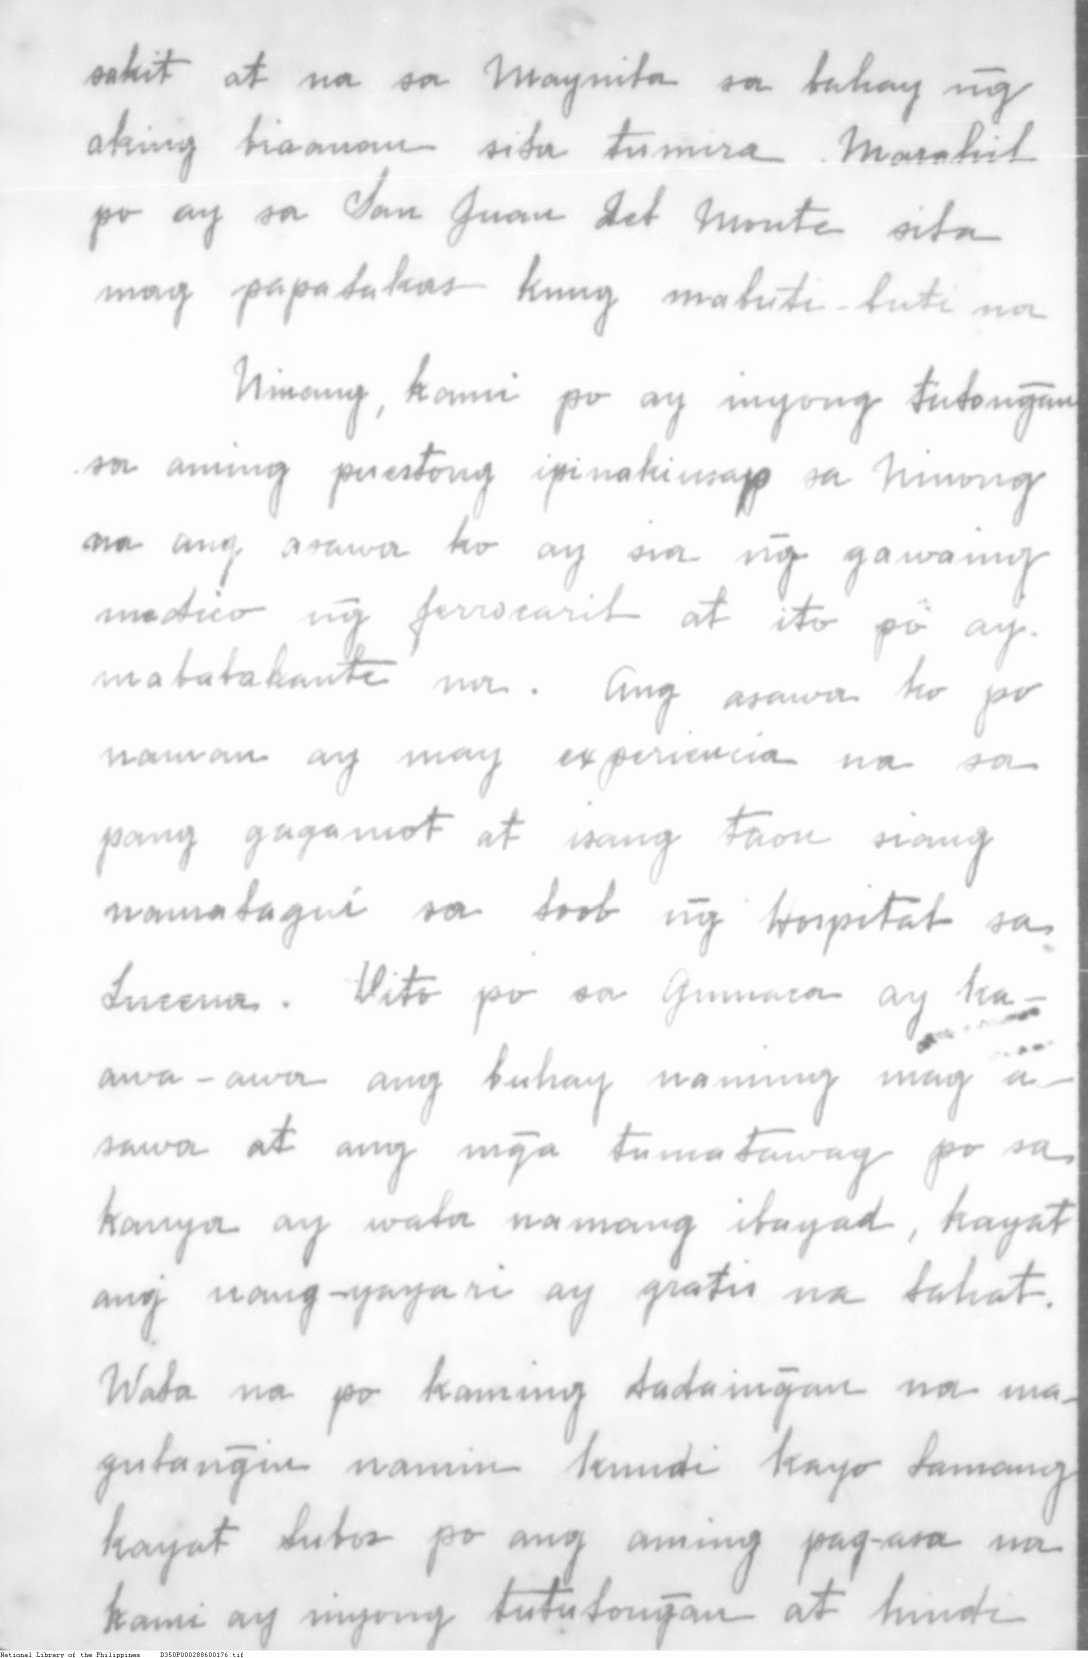 sakit at na sa Maynila sa bahay ng̃
aking bianan sila tumira. Marahil
po ay sa San Juan del Monte sila
mag papalakas kung mabuti-buti na
Ninang, kami po ay inyong tulong̃an
sa aming puestong ipinakiusap sa Ninong
na ang asawa ko ay sia ng̃ gawaing
medico ng̃ ferrocaril at ito po ay
mababakante na. Ang asawa ko po
naman ay may experiencia na sa
pang gagamot at isang taon siang
namalagui sa loob ng̃ Hospital sa
Lucena. Dito po sa Gumaca ay ka-
awa-awa ang buhay naming mag a-
sawa at ang mg̃a tumatawag po sa
kanya ay wala namang ibayad, kayat
ang nang-yayari ay gratis na lahat.
Wala na po kaming daduing̃an na ma-
gulang̃in namin kundi kayo lamang
kayat lubos po ang aming pag-asa na
kami ay inyong tutulong̃an at hindi
National Library of the Philippines D350P000288600176.tif